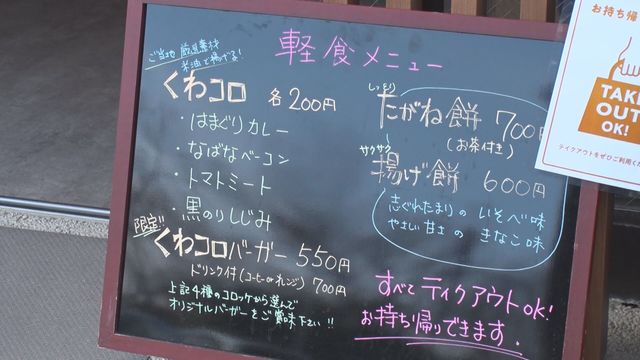 軽食メニュー
ご当地 厳選素材
米油で揚げてる!
くわコロ 各200円
・はまぐりカレー
・なばなベーコン
・トマトミート
・黒のりしじみ
限定!!
くわコロバーガー 550円
ドリンク付(コーヒーorオレンジ) 700円
上記4種のコロッケから選んで
オリジナルバーガーをご賞味下さい!!
しっとり
たがね餅 700円
(お茶付き)
サクサク
揚げ餅 600円
志ぐれたまりの いそべ味
やさしい甘さの きなこ味
すべてテイクアウトOK!
お持ち帰りできます.
お持ち帰
TAKE
OUT
OK!
テイクアウトをぜひご利用くだ